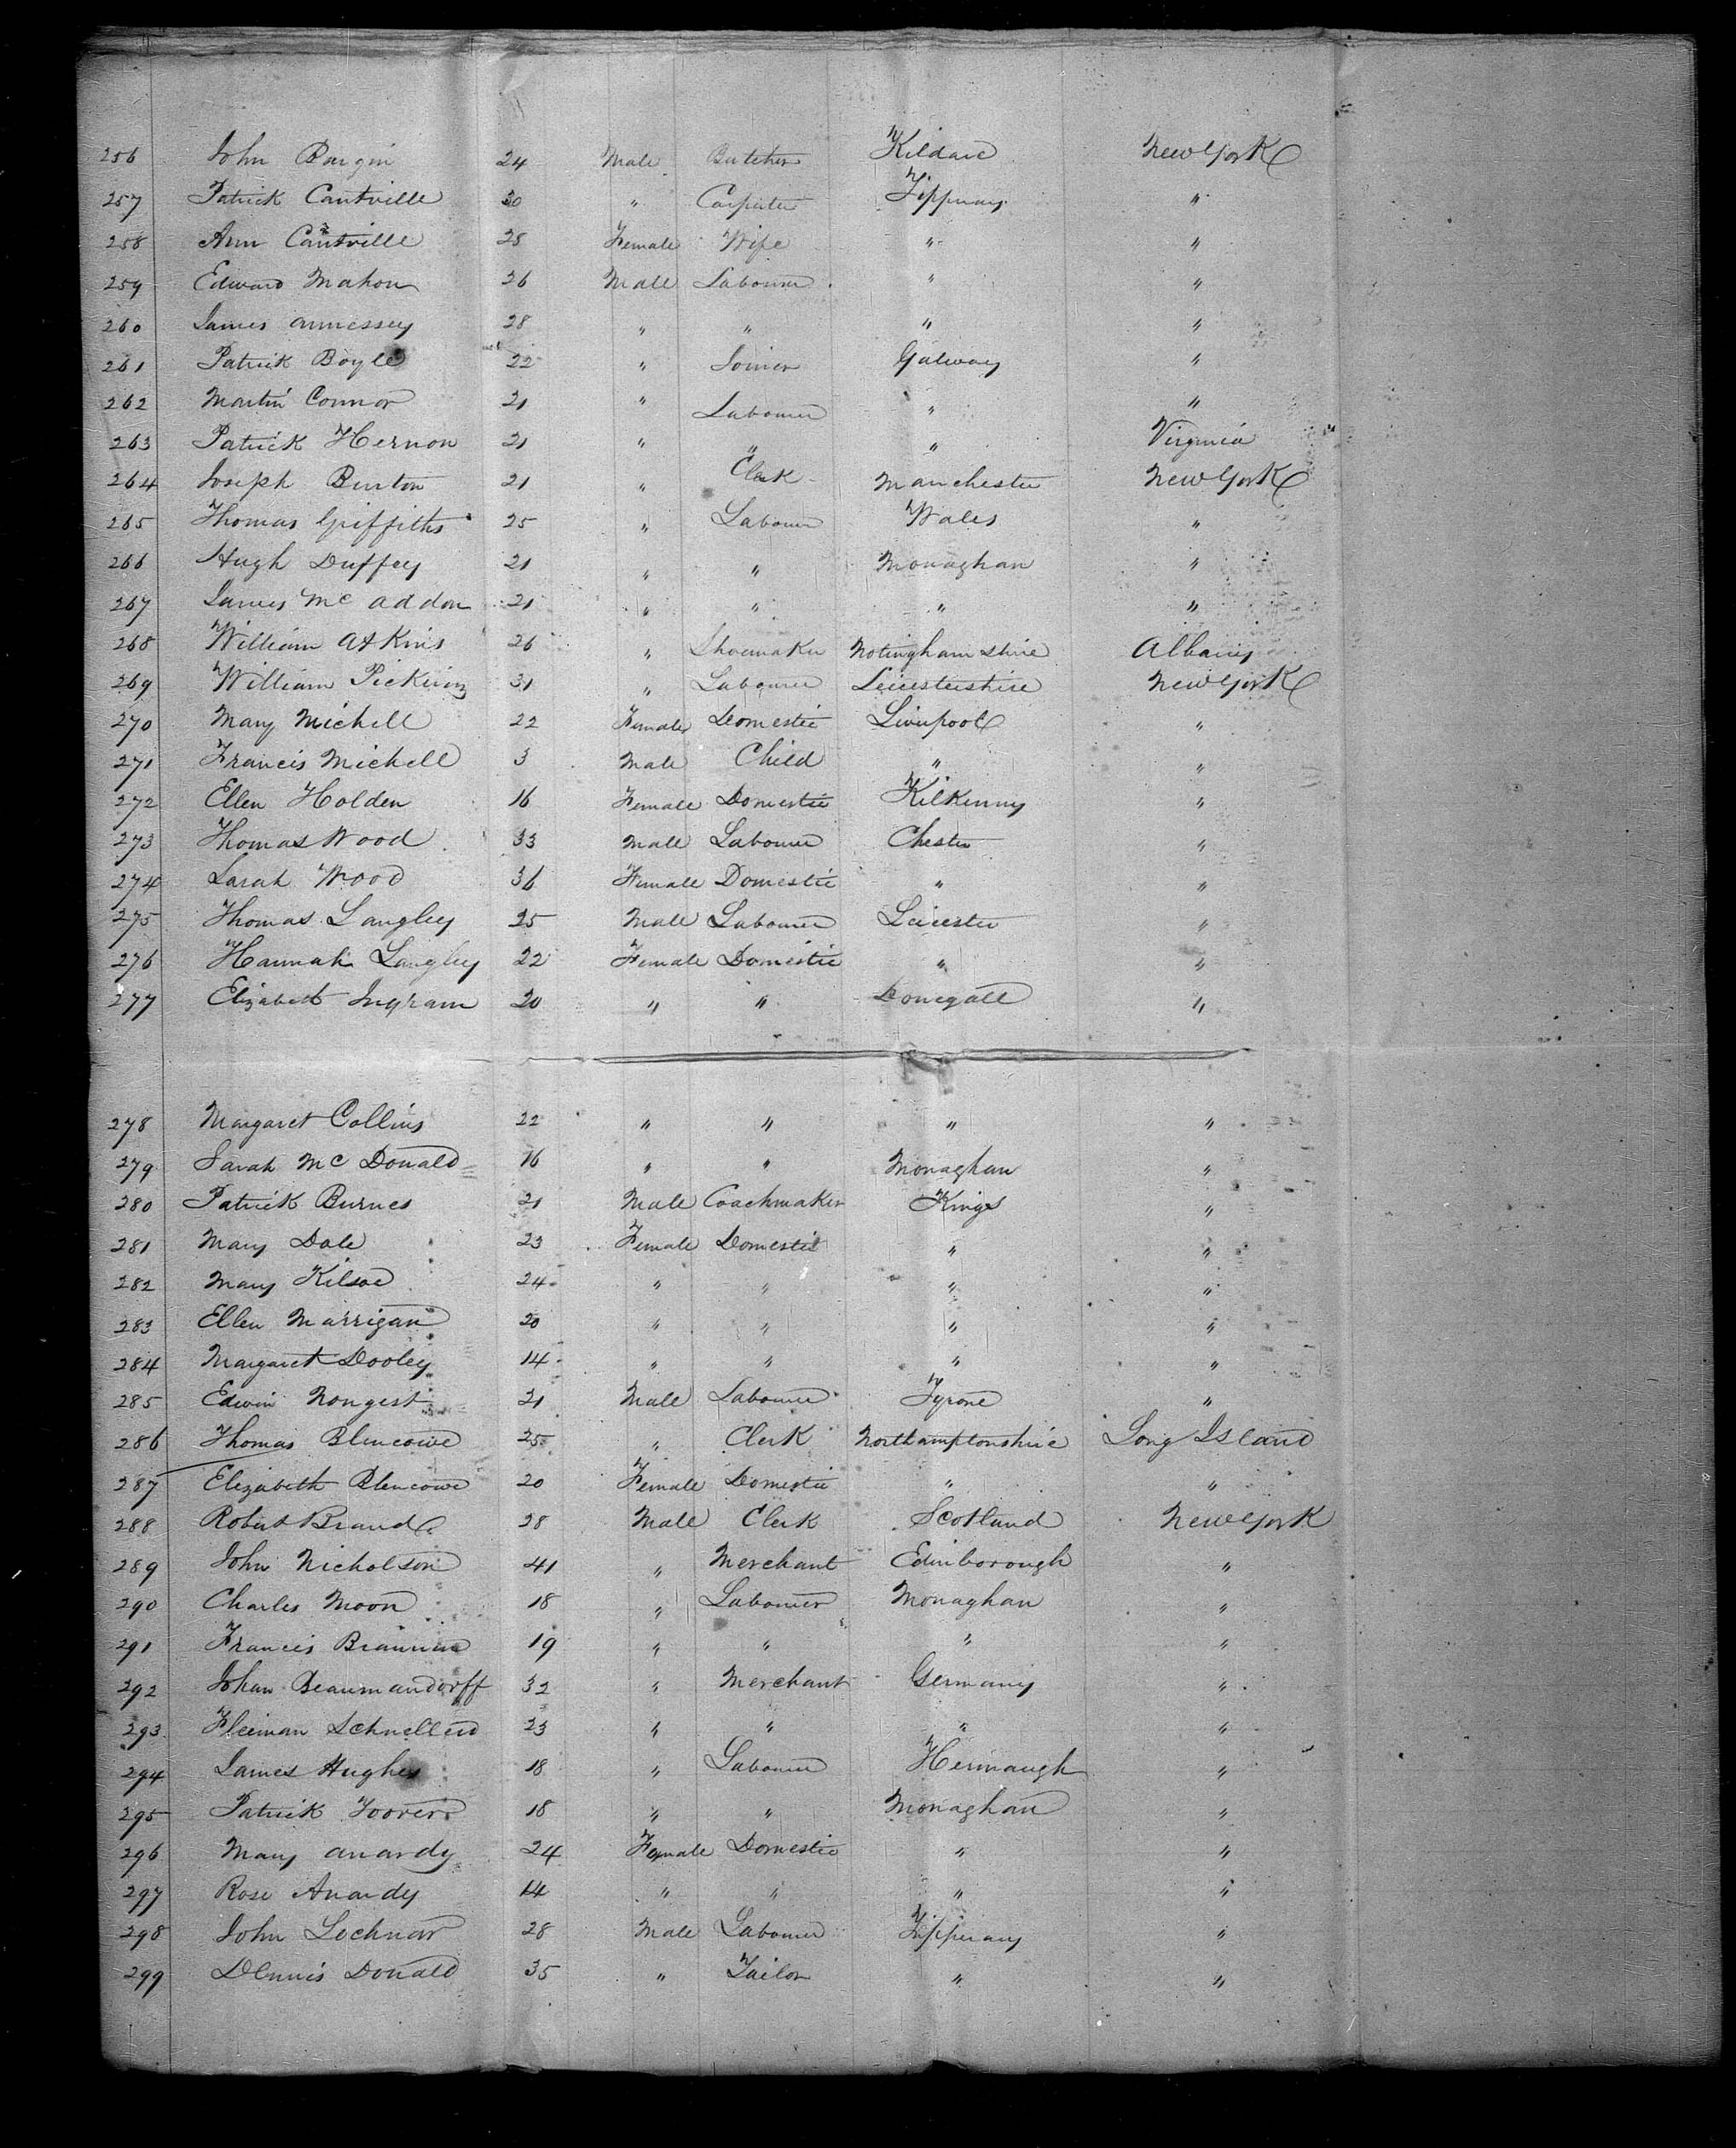 256 John Bargin 24 Male Butcher Kildare New York
257 Patrick Cantville 30 " Carpenter Tipperary "
258 Ann Cantville 28 Female Wife " "
259 Edward Mahon 26 Male Labourer " "
260 James Annessey 28 " " " "
261 Patrick Boyle 22 " Joiner Galway "
262 Martin Connor 21 " Labourer " "
263 Patrick Hernon 21 " " " Virginia
264 Joseph Burton 21 " Clerk Manchester New York
265 Thomas Griffiths 25 " Labourer Wales "
266 Hugh Duffey 21 " " Monaghan "
267 James Mc Addon 21 " " " "
268 William Atkins 26 " Shoemaker Notinghamshire Albany
269 William Pickring 31 " Labourer Leicestershire New York
270 Mary Michell 22 Female Domestic Liverpool "
271 Francis Michell 3 Male Child " "
272 Ellen Holden 16 Female Domestic Kilkenny "
273 Thomas Wood 33 Male Labourer Chester "
274 Sarah Wood 36 Female Domestic " "
275 Thomas Langley 25 Male Labourer Leicester "
276 Hannah Langley 22 Female Domestic " "
277 Elizabeth Ingram 20 " " Donegall "
278 Margaret Collins 22 " " " "
279 Sarah Mc Donald 16 " " Monaghan "
280 Patrick Burnes 21 Male Coachmaker Kings "
281 Mary Dale 23 Female Domestic " "
282 Mary Kilroe 24 " " " "
283 Ellen Marrigan 20 " " " "
284 Margaret Dooley 14 " " " "
285 Edwin Nongest 21 Male Labourer Tyrone "
286 Thomas Blencowe 25 " Clerk Northamptonshire Long Island
287 Elizabeth Blencowe 20 Female Domestic " "
288 Robert Brand 28 Male Clerk Scotland New York
289 John Nicholson 41 " Merchant Edinborough "
290 Charles Moon 18 " Labourer Monaghan "
291 Francis Brannan 19 " " " "
292 Johan Beaumandorff 32 " Merchant Germany "
293 Schnellen 23 " " " "
294 James Hughes 18 " Labourer Hermaugh "
295 Patrick 18 " " Monaghan "
296 Mary Anardy 24 Female Domestic " "
297 Rose Anardy 14 " " " "
298 John Lochnar 28 Male Labourer Tipperary "
299 Dennis Donald 35 " Tailor " "